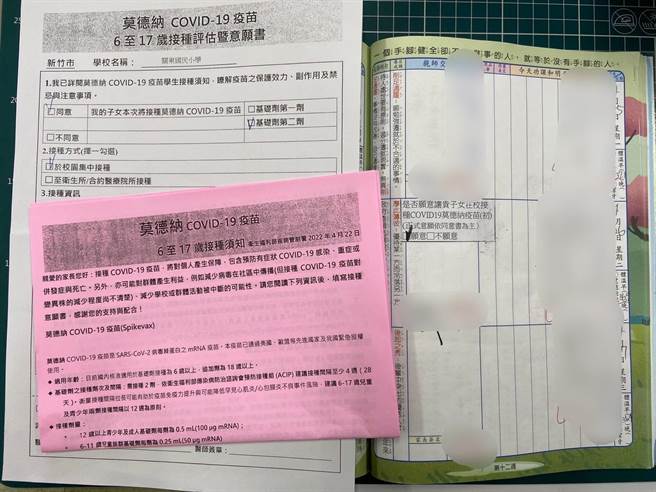 莫德納 COVID-19 疫苗
6 至 17 歲接種評估暨意願書
新竹市 學校名稱： 關東國民小學
1.我已詳閱莫德納 COVID-19 疫苗學生接種須知，瞭解疫苗之保護效力、副作用及禁
忌與注意事項。
□同意 我的子女本次將接種莫德納 COVID-19 疫苗 □基礎劑第一劑
□基礎劑第二劑
□不同意
2.接種方式(擇一勾選)
□於校園集中接種
□至衛生所/合約醫療院所接種
3.接種資訊
莫德納 COVID-19 疫苗
6 至 17 歲接種須知 衛生福利部疾病管制署 2022 年 4 月 22 日
親愛的家長您好：接種 COVID-19 疫苗，將對個人產生保障，包含預防有症狀 COVID-19 感染、重症或
併發症與死亡。另外，亦可能對群體產生利益，例如減少病毒在社區中傳播(但接種 COVID-19 疫苗對
變異株的減少程度尚不清楚)、減少學校或群體活動被中斷的可能性。請您閱讀下列資訊後，填寫接種
意願書。感謝您的支持與配合！
莫德納 COVID-19 疫苗(Spikevax)
莫德納 COVID-19 疫苗是 SARS-CoV-2 病毒棘蛋白之 mRNA 疫苗。本疫苗已通過美國、歐盟等先進國家及我國緊急授權
使用。
適用年齡：目前國內核准適用於基礎劑接種為 6 歲以上，追加劑為 18 歲以上。
基礎劑之接種劑次及間隔：需接種 2 劑，依衛生福利部傳染病防治諮詢會預防接種組 (ACIP) 建議接種間隔至少 4 週（28
天）。衡量接種間隔拉長可能有助於疫苗免疫力提升與可能降低罕見心肌炎/心包膜炎不良事件風險，建議 6-17 歲兒童
及青少年兩劑接種間隔以 12 週為原則。
接種劑量：
12 歲以上青少年及成人基礎劑每劑為 0.5 mL(100 μg mRNA)；
6-11 歲兒童族群基礎劑每劑為 0.25 mL(50 μg mRNA)
醫師簽章：
一個手腳健全卻不
事的人，就等於沒有手腳的人。
今天功課和明
是否願意讓貴子女在校接
種COVID19莫德納疫苗(初)
(正式意願依同意書為主)
□願意□不願意
星期一
星期二
體溫早
家長簽名
第十二週